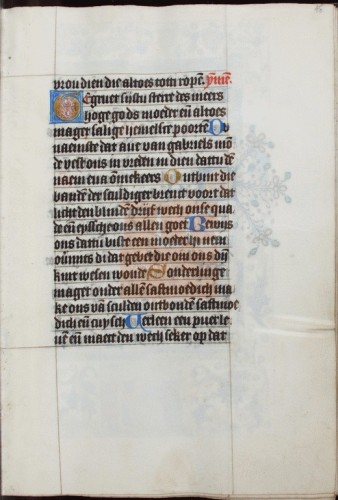 vrouwen die altoes tot u ropē. ymē.
Gegruet sijstu sterre des meers
hoge gods moeder eñ altoes
maget salige hemelsce poorte O
naemste dat aue van gabriels mō
de vest ons in vreden in dien dattu dē
naem eua ōmekeers Ontbint die
banden der sculdiger brenct voort dat
licht den blindē drijf wech onse qua
de eñ eyschet ons allen goet Bewijs
ons dattu biste een moeder hi nem
ouermids di dat gebet die om ons dijn
kint wesen woude Sonderlinge
maget onder allē sachtmoedich ma
ke ons van sculden ontbondē sachtmoe
dich eñ cuysch Verleen een puerle
uē eñ maect den wech seker op dat